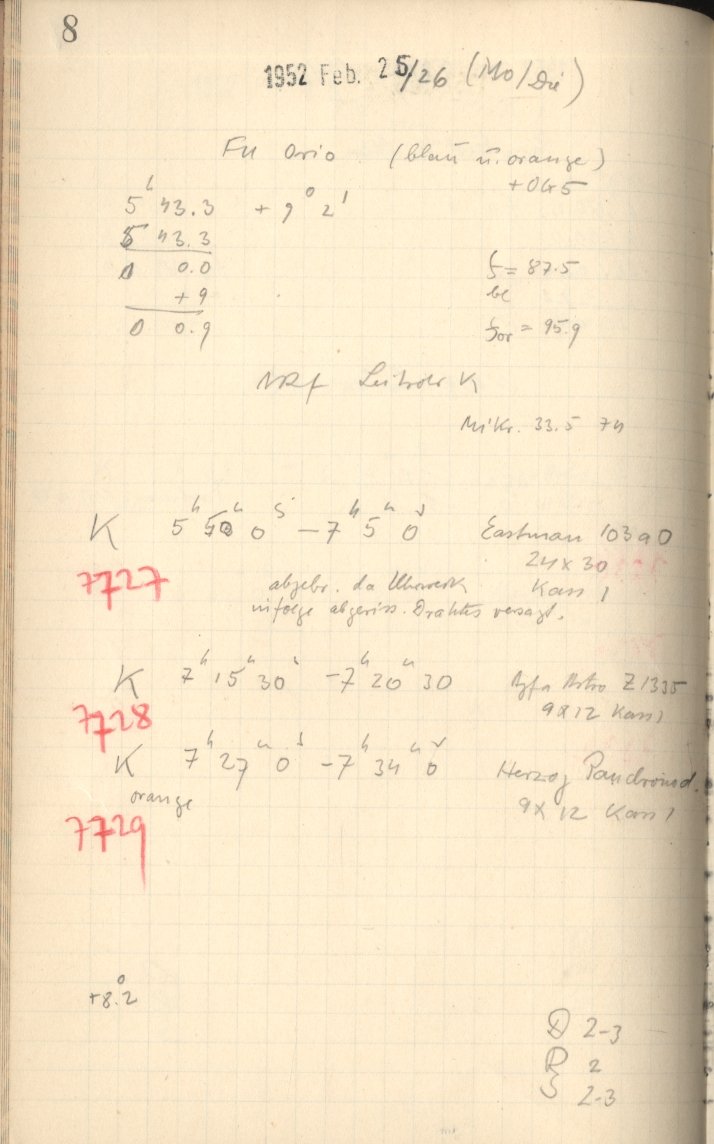 8
1952 Feb. 25/26 (Mo/Die)
FU Orio (blau u. orange)
+ OG5
5ʰ 43.3 + 9° 2'
5 43.3
0 0.0
+ 9
0 0.9
f = 87.5
bl
f or = 95.9
K
Mikr. 33.5 74
K 5ʰ 50ᵐ 0ˢ – 7ʰ 5ᵐ 0ˢ Eastman 103aO
24x30
7727 Kass 1
abgebr. da Uhrwerk
infolge abgeriss. Drahtes versagt.
K 7ʰ 15ᵐ 30ˢ – 7ʰ 20ᵐ 30 Agfa Astro Z1335
7728 9x12 Kass 1
K 7ʰ 27ᵐ 0ˢ – 7ʰ 34ᵐ 0ˢ Herzog
orange 9x12 Kass 1
7729
+8.°2
D 2-3
R 2
S 2-3